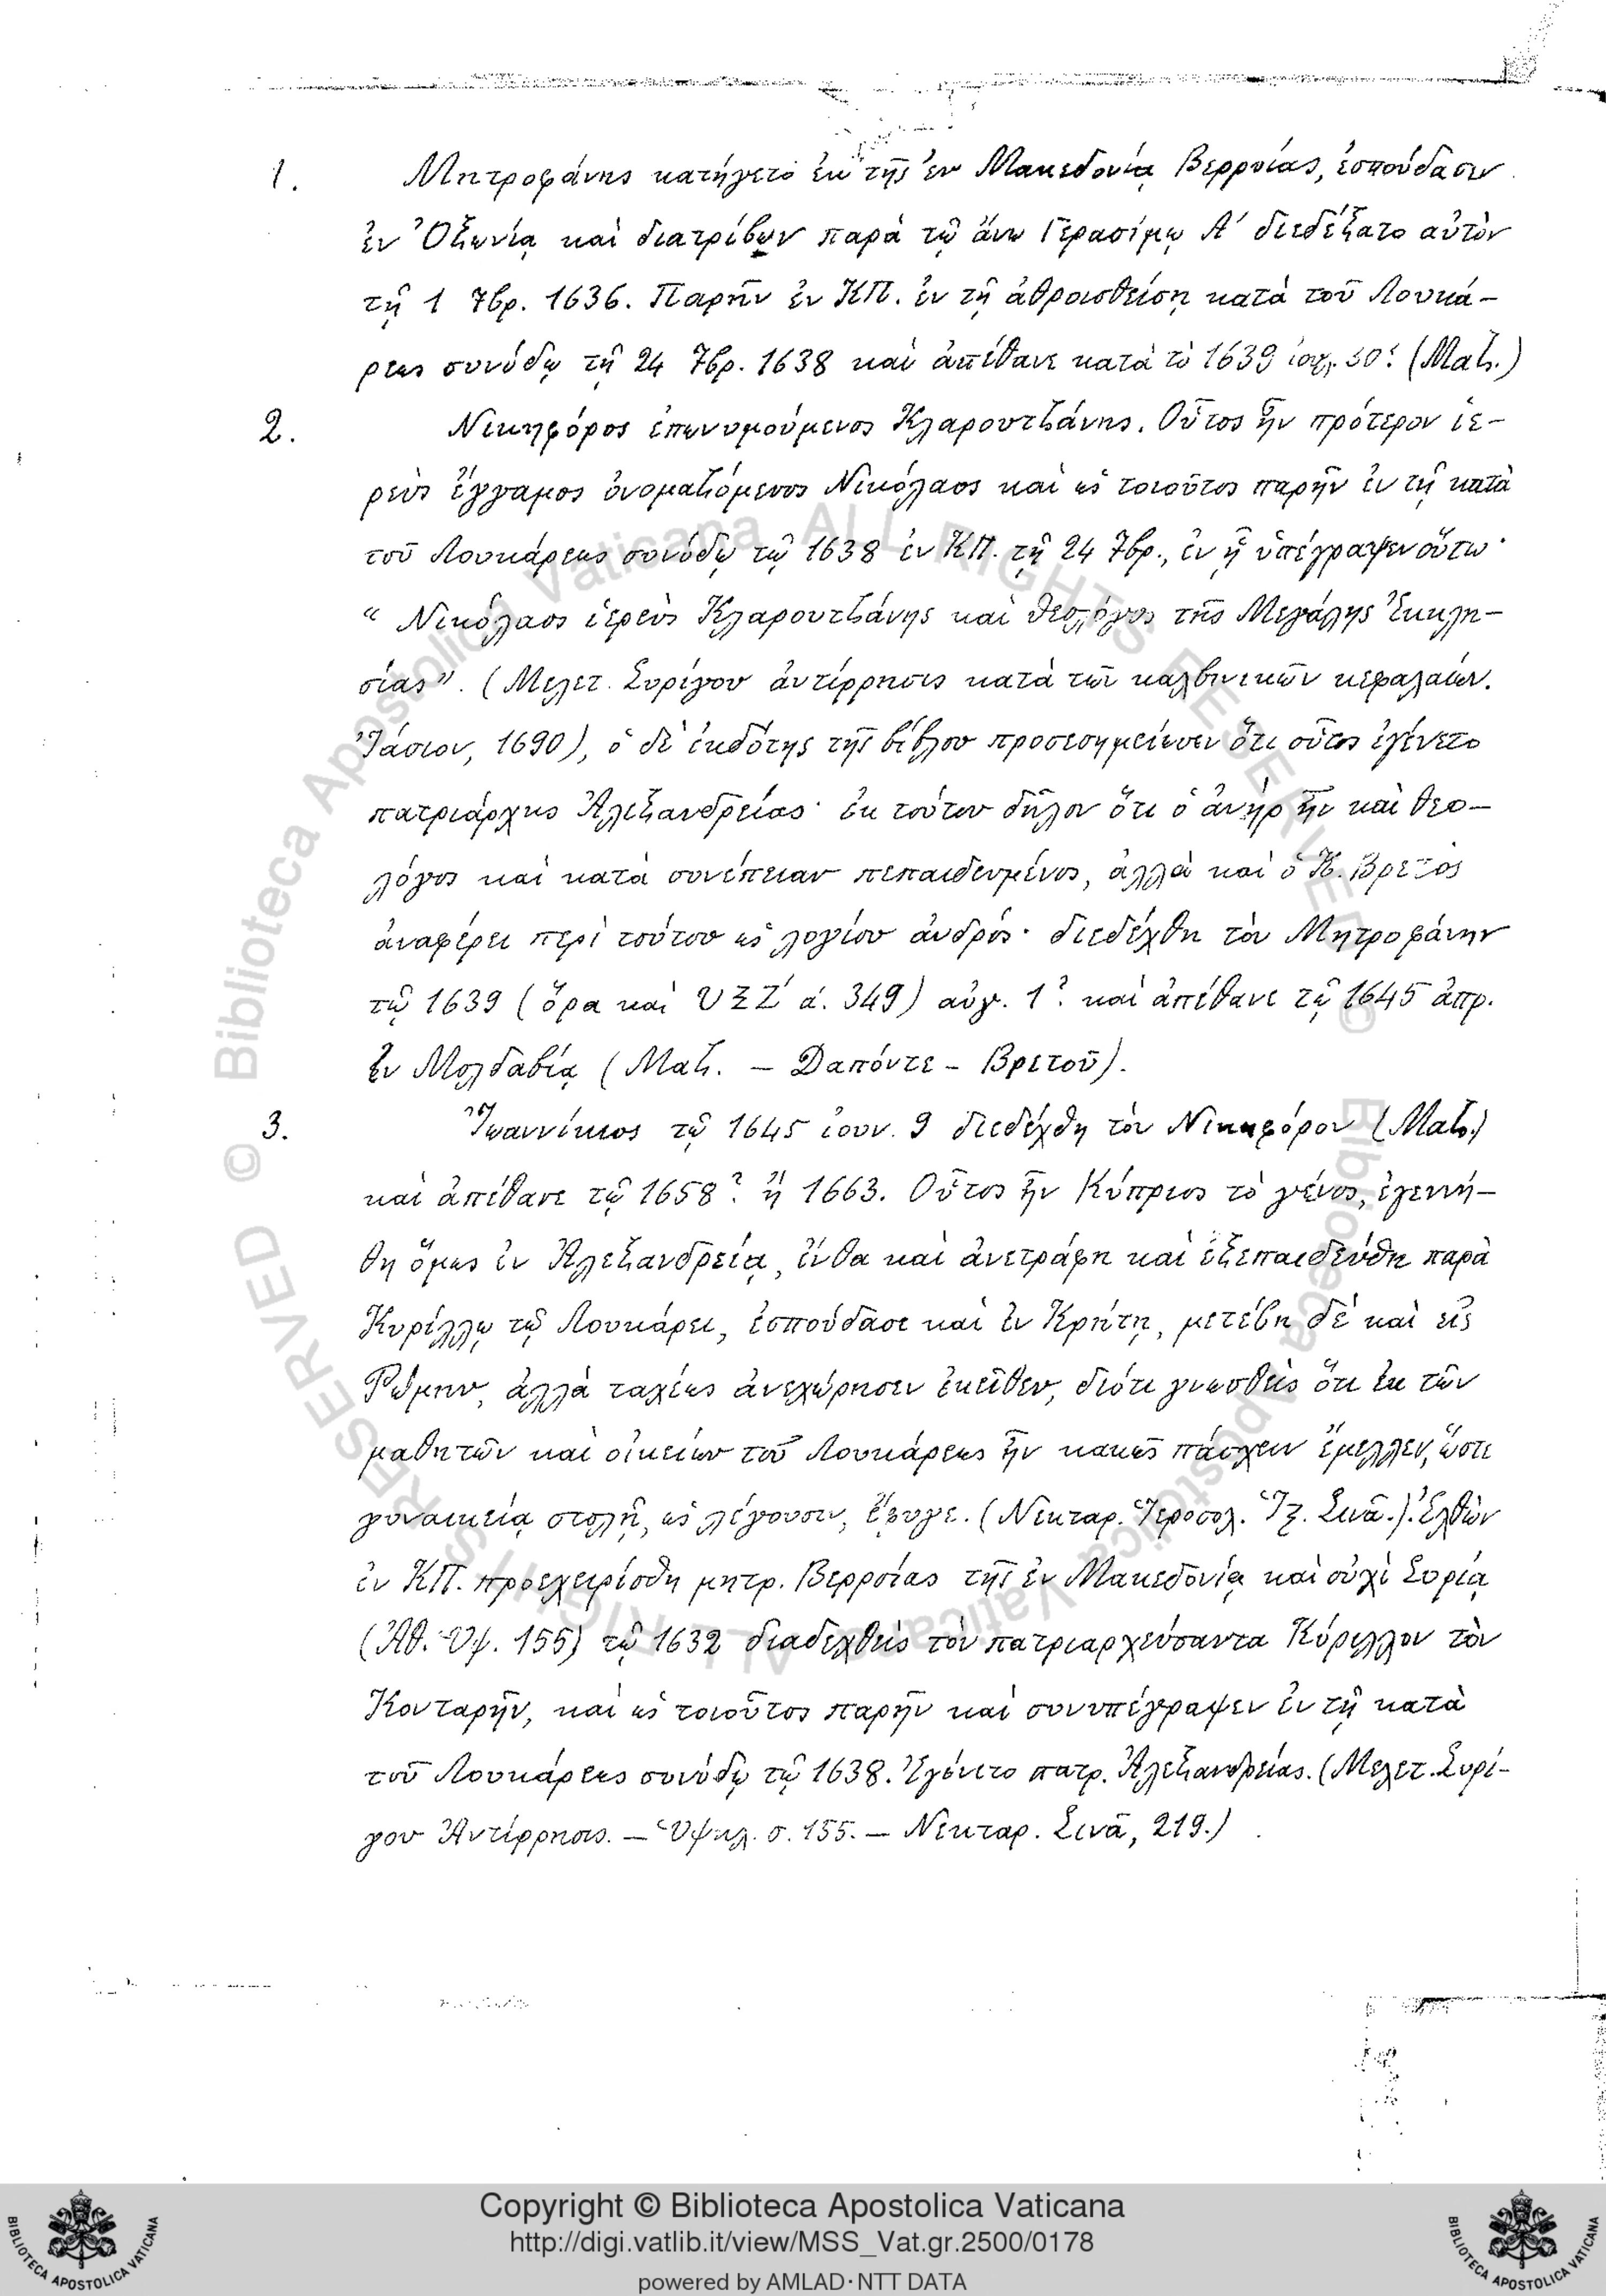 1. Μητροφάνης κατήγετο ἐκ τῆς ἐν Μακεδονίᾳ Βερροίας, ἐσπούδασεν
ἐν Ὀξωνίᾳ καὶ διατρίβων παρὰ τῷ ἄνω Γερασίμῳ Α΄ διεδέξατο αὐτὸν
τῇ 1 7βρ. 1636. Παρῆν ἐν ΚΠ. ἐν τῇ ἀθροισθείσῃ κατὰ τοῦ Λουκά-
ρεως συνόδῳ τῇ 24 7βρ. 1638 καὶ ἀπέθανε κατὰ τὸ 1639 30? (Ματζ.)
2. Νικηφόρος ἐπωνυμούμενος Κλαρουτζάνης. Οὗτος ἦν πρότερον ἱε-
ρεὺς ἔγγαμος ὀνομαζόμενος Νικόλαος καὶ ὡς τοιοῦτος παρῆν ἐν τῇ κατὰ
τοῦ Λουκάρεως συνόδῳ τῷ 1638 ἐν ΚΠ. τῇ 24 7βρ., ἐν ᾗ ὑπέγραψεν οὕτω·
“ Νικόλαος ἱερεὺς Κλαρουτζάνης καὶ θεολόγος τῆς Μεγάλης Ἐκκλη-
σίας”. (Μελετ. Συρίγου ἀντίρρησις κατὰ τῶν καλβινικῶν κεφαλαίων.
Ἰάσιον, 1690), ὁ δὲ ἐκδότης τῆς βίβλου προσεσημείωσεν ὅτι οὗτος ἐγένετο
πατριάρχης Ἀλεξανδρείας· ἐκ τούτου δῆλον ὅτι ὁ ἀνὴρ ἦν καὶ θεο-
λόγος καὶ κατὰ συνέπειαν πεπαιδευμένος, ἀλλὰ καὶ ὁ Κ. Βρετὸς
ἀναφέρει περὶ τούτου ὡς λογίου ἀνδρός· διεδέχθη τὸν Μητροφάνην
τῷ 1639 (ὅρα καὶ ΥΞΖ΄ ά. 349) αὐγ. 1? καὶ ἀπέθανε τῷ 1645 ἀπρ.
ἐν Μολδαβίᾳ (Ματζ. – Δαπόντε – Βρετοῦ).
3. Ἰωαννίκιος τῷ 1645 ἰουν. 9 διεδέχθη τὸν Νικηφόρον (Ματζ.)
καὶ ἀπέθανε τῷ 1658? ἢ 1663. Οὗτος ἦν Κύπριος τὸ γένος, ἐγεννή-
θη ὅμως ἐν Ἀλεξανδρείᾳ, ἔνθα καὶ ἀνετράφη καὶ ἐξεπαιδεύθη παρὰ
Κυρίλλῳ τῷ Λουκάρει, ἐσπούδασε καὶ ἐν Κρήτῃ, μετέβη δὲ καὶ εἰς
Ρώμην, ἀλλὰ ταχέως ἀνεχώρησεν ἐκεῖθεν, διότι γνωσθεὶς ὅτι ἐκ τῶν
μαθητῶν καὶ οἰκείων τοῦ Λουκάρεως ἦν κακῶς πάσχειν ἔμελλεν, ὥστε
γυναικείᾳ στολῇ, ὡς λέγουσιν, ἔφυγε. (Νεκταρ. Ἱεροσολ. Ἱζ. Σινᾶ.). Ἐλθὼν
ἐν ΚΠ. προεχειρίσθη μητρ. Βερροίας τῆς ἐν Μακεδονίᾳ καὶ οὐχὶ Συρίᾳ
(Ἀθ. Ὑψ. 155) τῷ 1632 διαδεχθεὶς τὸν πατριαρχεύσαντα Κύριλλον τὸν
Κονταρῆν, καὶ ὡς τοιοῦτος παρῆν καὶ συνυπέγραψεν ἐν τῇ κατὰ
τοῦ Λουκάρεως συνόδῳ τῷ 1638. Ἐγένετο πατρ. Ἀλεξανδρείας. (Μελετ. Συρί-
γου Ἀντίρρησις. – Ὑψηλ. σ. 155. – Νεκταρ. Σινᾶ, 219.)
© Biblioteca Apostolica Vaticana ALL RIGHTS RESERVED
© Biblioteca Apostolica Vaticana ALL RIGHTS RESERVED
Copyright © Biblioteca Apostolica Vaticana
http://digi.vatlib.it/view/MSS_Vat.gr.2500/0178
powered by AMLAD·NTT DATA
BIBLIOTECA APOSTOLICA VATICANA
BIBLIOTECA APOSTOLICA VATICANA